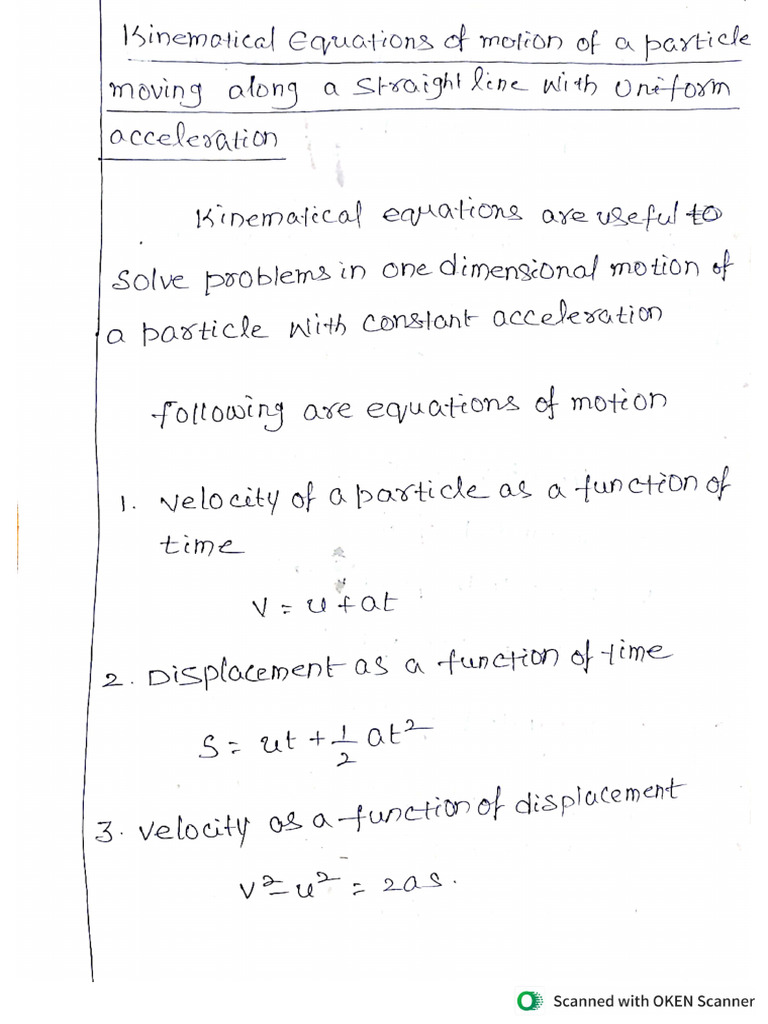 Kinematical Equations of motion of a particle
moving along a straight line with uniform
acceleration
Kinematical equations are useful to
solve problems in one dimensional motion of
a particle with constant acceleration
following are equations of motion
1. velocity of a particle as a function of
time
V = u + at
2. Displacement as a function of time
S = ut + 1/2 at²
3. velocity as a function of displacement
v² - u² = 2as.
Scanned with OKEN Scanner